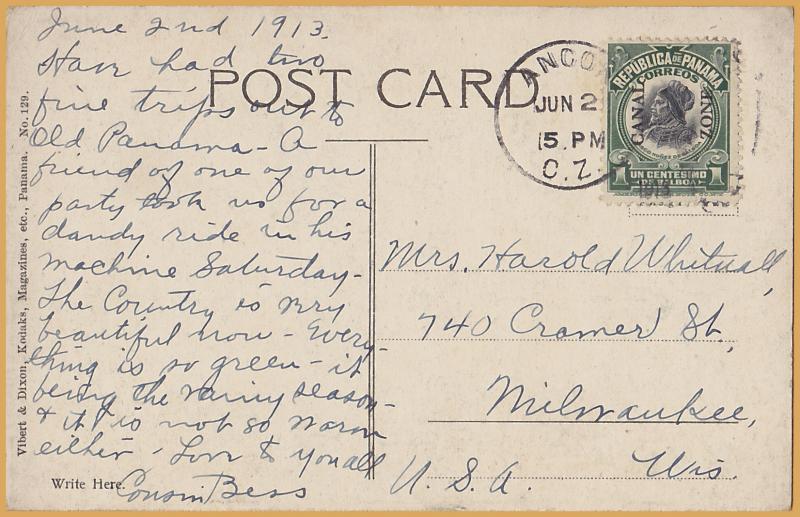 June 2nd 1913.
Have had two
fine trips out to
Old Panama - A
friend of one of our
party took us for a
dandy ride in his
machine Saturday -
The Country is very
beautiful now - Every-
thing is so green - it
being the rainy season -
& it is not so warm
either - Love to you all
Cousin Bess
Write Here.
POST CARD
Vibert & Dixon, Kodaks, Magazines, etc., Panama. No. 129.
ANCO
JUN 2
5. PM
C.Z.
1913
REPUBLICA DE PANAMA
CORREOS
CANAL ZONE
1 UN CENTESIMO 1
DE BALBOA
Mrs. Harold Whitnall,
740 Cramer St.,
Milwaukee,
Wis.
U. S. A.